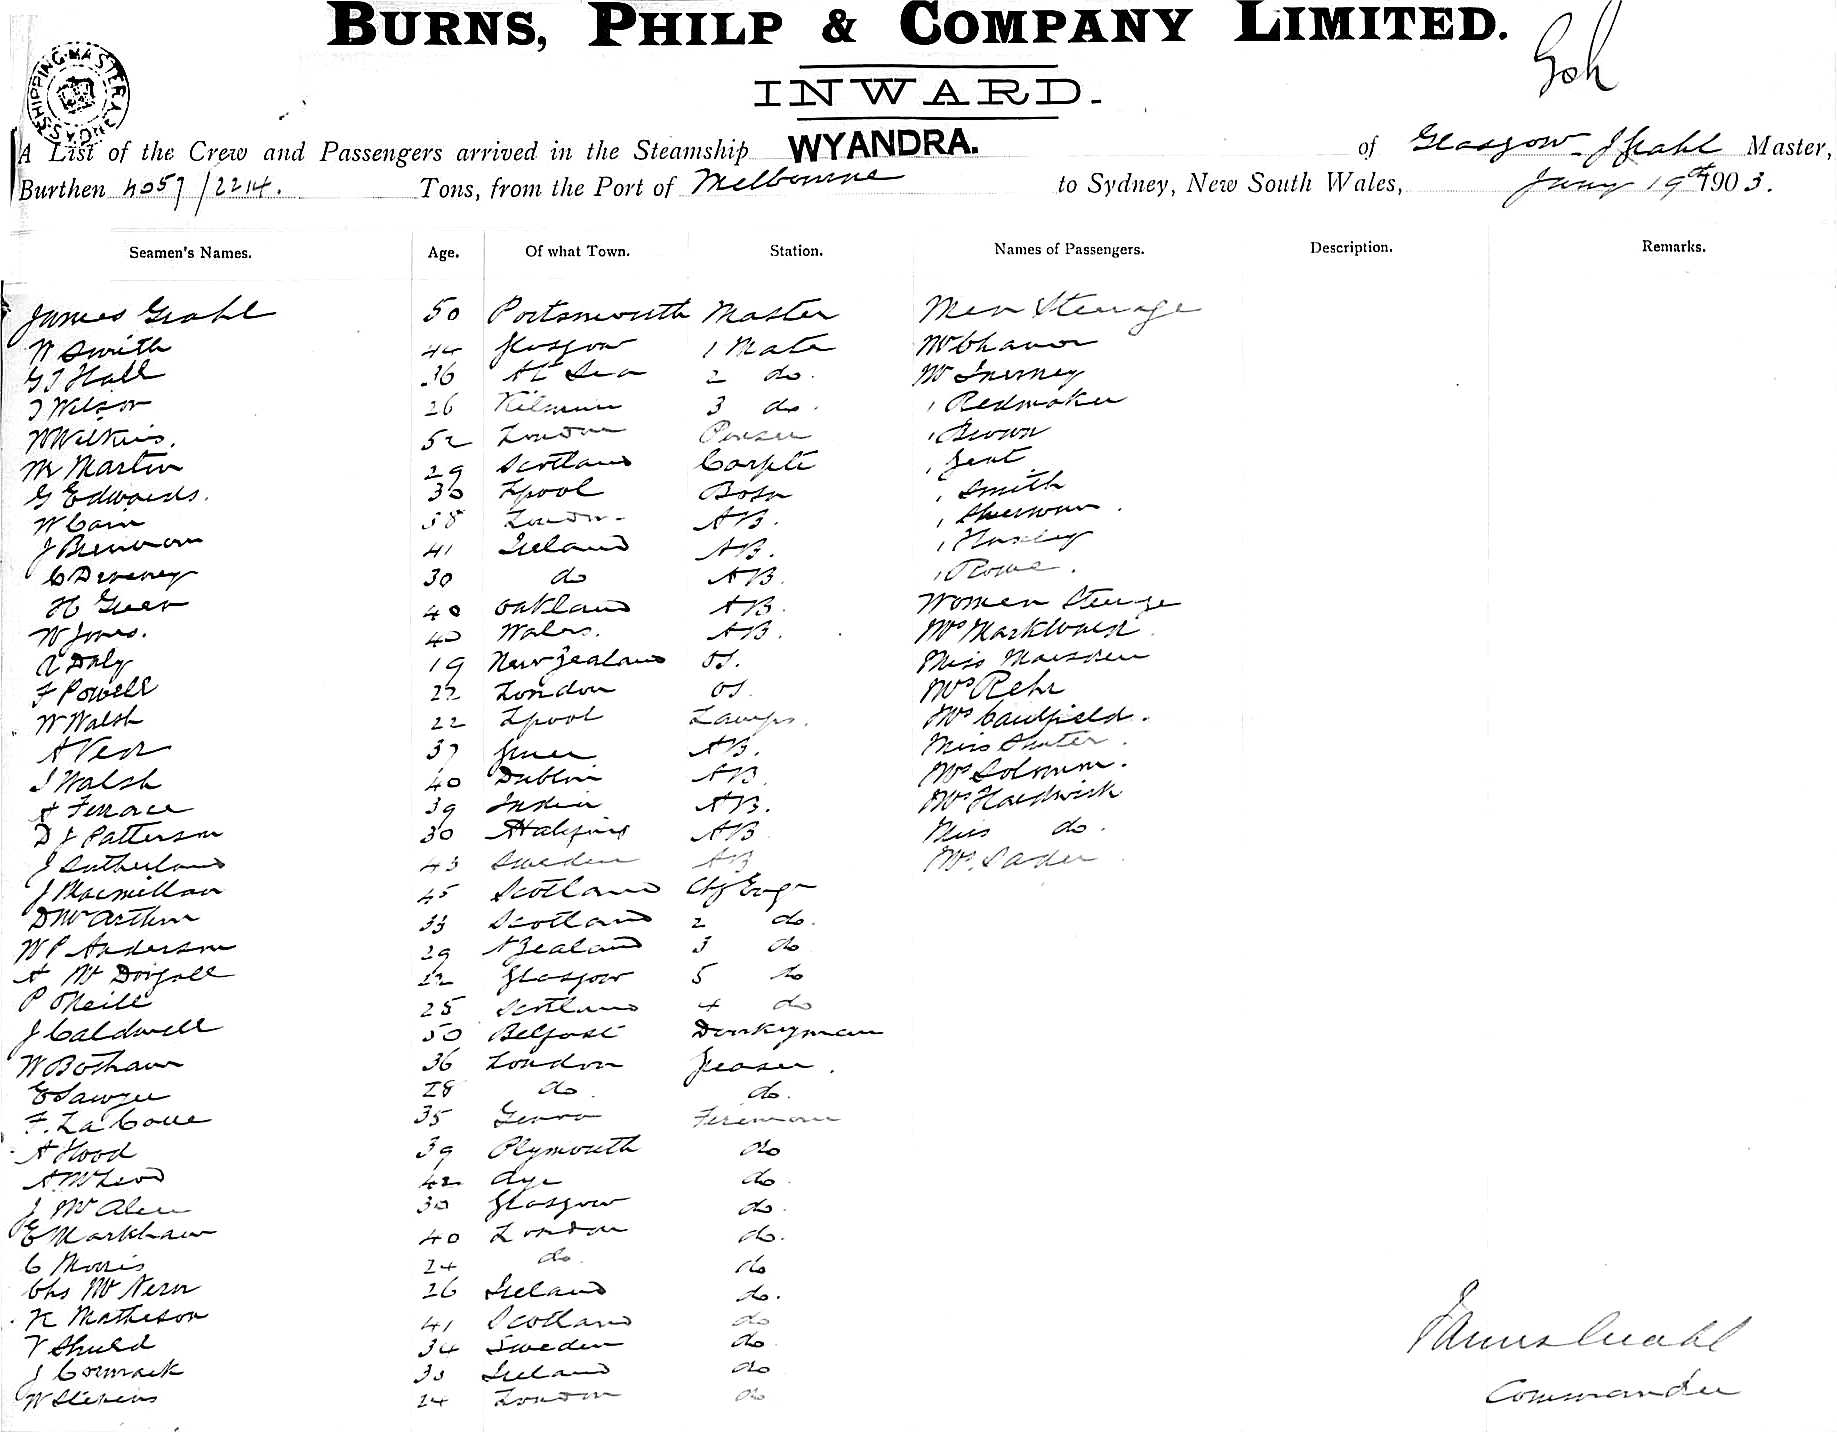 BURNS, PHILP & COMPANY LIMITED.
INWARD.
SHIPPING MASTER
A List of the Crew and Passengers arrived in the Steamship WYANDRA. of Glasgow J Grahl Master,
Burthen 4057/2214. Tons, from the Port of Melbourne to Sydney, New South Wales, Jany 19th 1903.
Seamen's Names. Age. Of what Town. Station. Names of Passengers. Description. Remarks.
James Grahl 50 Portsmouth Master Men Steerage
W Smith 44 Glasgow 1 Mate
G J Hall 36 At Sea 2 do. Mr Inerney
J Wilson 26 3 do. Redmaker
W Wilkins. 52 London Purser Brown
M Martin 29 Scotland Carptr Gent
G Edwards. 30 Lpool Bosn Smith
W Cain 58 London AB. Sherman.
J Brennan 41 Ireland AB.
C Deveney 30 do AB. Rowe.
H Green 40 Oakland AB. Women Steerage
W Jones. 40 Wales. AB. Mrs Markwald.
Daly 19 New Zealand OS. Miss Marsden
F Powell 22 London OS. Mrs Rehr
W Walsh 22 Lpool Lamps. Mrs Caulfield.
37 AB. Miss
J Walsh 40 Dublin AB. Mrs Solomon.
A Ferrace 39 India AB. Mrs Hardwick
D J Patterson 30 AB Miss do.
J Sutherland 43 Sweden AB Mrs Sader
J Macmillan 45 Scotland Chf Engr
D McArthur 33 Scotland 2 do.
W P Anderson 29 N Zealand 3 do
A McDougall 22 Glasgow 5 do
P ONeill 25 Scotland 4 do
J Caldwell 50 Belfast Donkeyman
W Botham 36 London Greaser.
E Sawyer 28 do do.
F. La 35 Genoa Fireman
A Hood 39 Plymouth do
A McLeod 42 Ayr do.
J 30 Glasgow do.
E Markham 40 London do.
C Morris 24 do do
Chs Mc 26 Ireland do.
K Matheson 41 Scotland do
34 Sweden do
J Cormack 33 Ireland do
W Stevens 24 London do
James Grahl
Commander